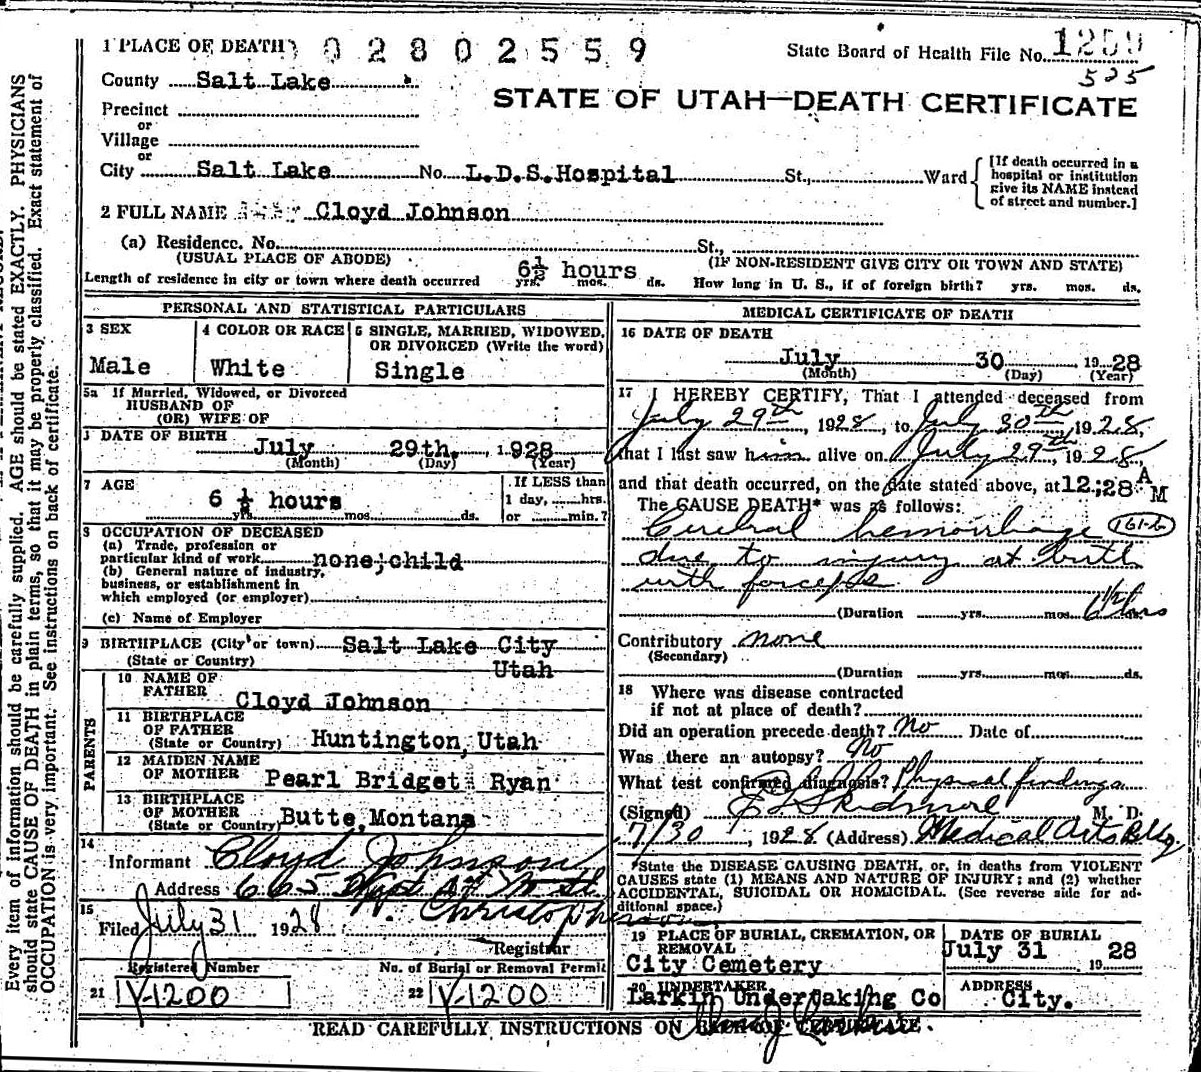 Every item of information should be carefully supplied. AGE should be stated EXACTLY. PHYSICIANS
should state CAUSE OF DEATH in plain terms, so that it may be properly classified. Exact statement of
OCCUPATION is very important. See instructions on back of certificate.
1 PLACE OF DEATH 02802559 State Board of Health File No. 1259
525
County Salt Lake
STATE OF UTAH—DEATH CERTIFICATE
Precinct
or
Village
or
City Salt Lake No. L.D.S.Hospital St., Ward
[If death occurred in a
hospital or institution
give its NAME instead
of street and number.]
2 FULL NAME Cloyd Johnson
(a) Residence. No. St.,
(USUAL PLACE OF ABODE) (IF NON-RESIDENT GIVE CITY OR TOWN AND STATE)
Length of residence in city or town where death occurred 6½ hours yrs. mos. ds. How long in U. S., if of foreign birth? yrs. mos. ds.
PERSONAL AND STATISTICAL PARTICULARS
3 SEX
Male
4 COLOR OR RACE
White
5 SINGLE, MARRIED, WIDOWED,
OR DIVORCED (Write the word)
Single
5a If Married, Widowed, or Divorced
HUSBAND OF
(OR) WIFE OF
DATE OF BIRTH
July 29th. 1928
(Month) (Day) (Year)
7 AGE
6 ½ hours
yrs. mos. ds.
If LESS than
1 day, hrs.
or min.?
8 OCCUPATION OF DECEASED
(a) Trade, profession or
particular kind of work none;child
(b) General nature of industry,
business, or establishment in
which employed (or employer)
(c) Name of Employer
9 BIRTHPLACE (City or town) Salt Lake City
(State or Country) Utah
PARENTS
10 NAME OF
FATHER Cloyd Johnson
11 BIRTHPLACE
OF FATHER
(State or Country) Huntington,Utah
12 MAIDEN NAME
OF MOTHER Pearl Bridget Ryan
13 BIRTHPLACE
OF MOTHER
(State or Country) Butte,Montana
14
Informant Cloyd Johnson
Address 665
15
Filed July 31 1928 Christopherson
Registrar
Registered Number
21 V-1200
No. of Burial or Removal Permit
22 V-1200
MEDICAL CERTIFICATE OF DEATH
16 DATE OF DEATH
July 30 1928
(Month) (Day) (Year)
17 I HEREBY CERTIFY, That I attended deceased from
July 29th, 1928, to July 30th, 1928,
that I last saw him alive on July 29th, 1928,
and that death occurred, on the date stated above, at 12;28 A M
The CAUSE DEATH* was as follows:
Cerebral hemorrhage 161-b
due to injury at birth
with forceps
(Duration yrs. mos. 6½ hrs
Contributory none
(Secondary)
(Duration yrs. mos. ds.
18 Where was disease contracted
if not at place of death?
Did an operation precede death? No Date of
Was there an autopsy? No
What test confirmed diagnosis? Physical findings
(Signed) E L Skidmore M. D.
7/30, 1928 (Address) Medical Arts Bldg.
*State the DISEASE CAUSING DEATH, or, in deaths from VIOLENT
CAUSES state (1) MEANS AND NATURE OF INJURY; and (2) whether
ACCIDENTAL, SUICIDAL OR HOMICIDAL. (See reverse side for ad-
ditional space.)
19 PLACE OF BURIAL, CREMATION, OR
REMOVAL
City Cemetery
DATE OF BURIAL
July 31 1928
20 UNDERTAKER
Larkin Undertaking Co
ADDRESS
City.
READ CAREFULLY INSTRUCTIONS ON BACK OF CERTIFICATE.